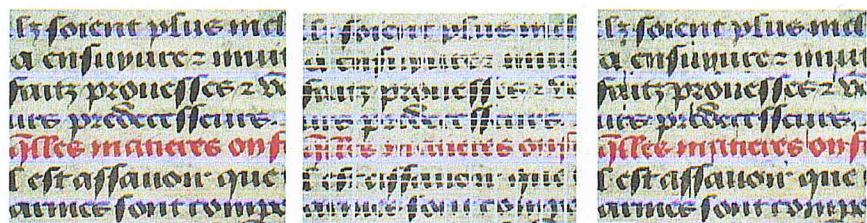 lz soient plus incl
a ensuyure ⁊ imit
faitz prouesses ⁊ ve
urs predecesseurs.
q̃lles matieres on f
l est assauoir que
armes sont compo
lz soient plus incl
a ensuyure ⁊ imit
faitz prouesses ⁊ ve
urs predecesseurs.
q̃lles matieres on f
l est assauoir que
armes sont compo
lz soient plus incl
a ensuyure ⁊ imit
faitz prouesses ⁊ ve
urs predecesseurs.
q̃lles matieres on f
l est assauoir que
armes sont compo